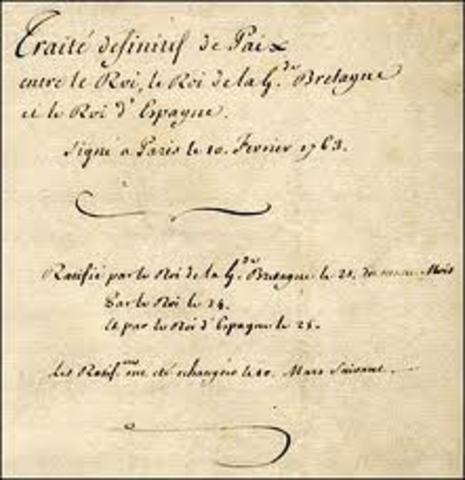 Traité definitif de Paix
entre le Roi, le Roi de la G.de Bretagne
et le Roi d'Espagne.
Signé a Paris le 10. Fevrier 1763.
Ratifié par le Roi de la G.de Bretagne le 21. du même Mois
Par le Roi le 24.
et par le Roi d'Espagne le 25.
Les Ratif.ons ont été echangées le 10. Mars Suivant.